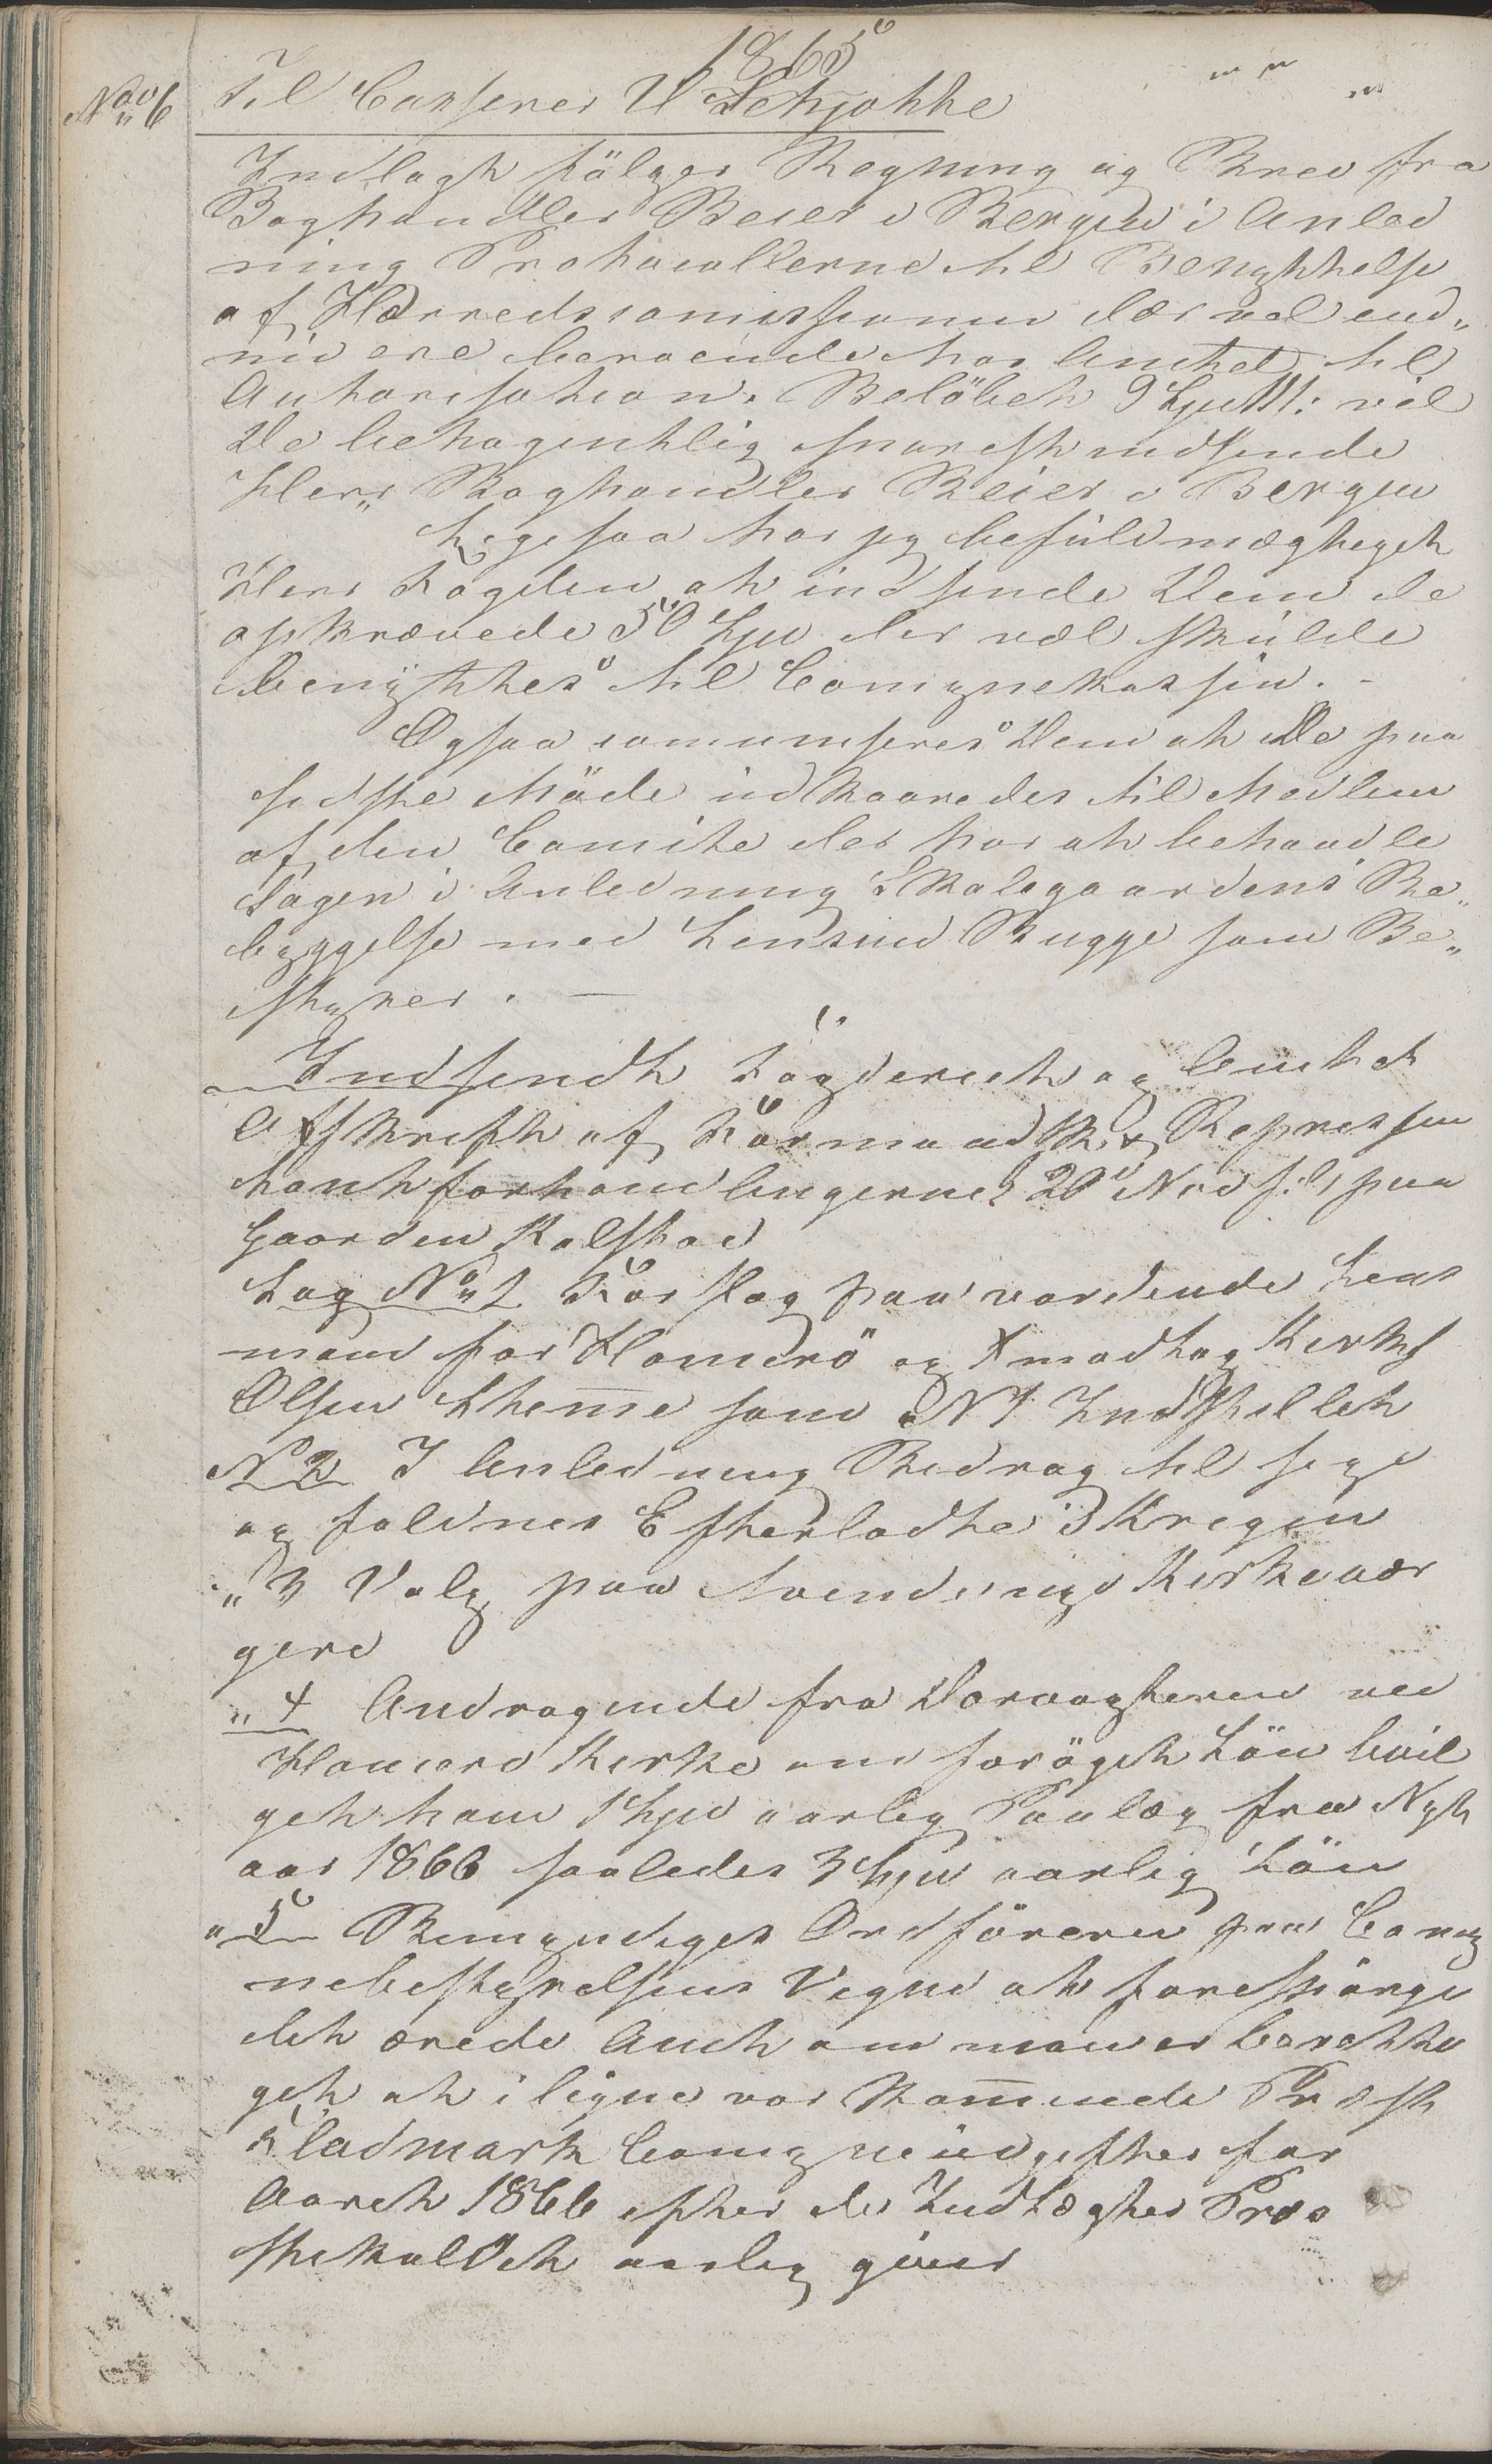 1865
No 6 Til Casserer U Schjøtte
Indlagt følger Regning og Brev fra
Boghandler Beier i Bergen i Anled
ning Protocollerne til Benyttelse
af Herredscomissionen der vel end„
nu ere beroende hos Amtet til
Authorisation. Beløbet 9 Spd: vil
De behagentlig snarest indsende
Herr„ Boghandler Beier i Bergen
Ligesaa har jeg befuldmægtiget
Herr Fogden at indsende Dem de
opkrævede 50 Spd der vel skulde
benyttes til Comynekassen. –
Ogsaa comuniseres Dem at De paa
sidste Møde udkaaredes til Medlem
af den Comite der har at behandle
Sagen i Anledning Skolegaardens Be„
byggelse med Lensmd Bugge som Be„
styrer. —
Indsendt Fogderiet og Amtet
Afskrift af Formandsk & Repressen
tantforhandlingerne 20 Nov f: A paa
Gaarden Kalstad
Sag No 1 Forslag paa vordende Lens
mand for Hamerø og indtog Kirks
Olsen Themme som N 1 Indstillet
N 2 I Anledning Bidrag til syge
og faldnes Efterladte i Krigen
„ 3 Valg paa tvende nye Kirkevær
gere
„ 4 Andragende fra Dørvogteren ved
Hamerø Kirke om forøget Løn bevil
get ham 1 Spd aarlig Paalæg fra Nyt
aar 1866 saaledes 3 Spd aarlig Løn
„ 5 Bemyndiges Ordføreren paa Comy
nebestyrelsens Vegne at forespørge
det ærede Amt om man er berette
get at iligne vor kommende Præst
Fladmark Comyneudgifter for
Aaret 1866 efter de Indtægter Præ
stekaldet aarlig giver